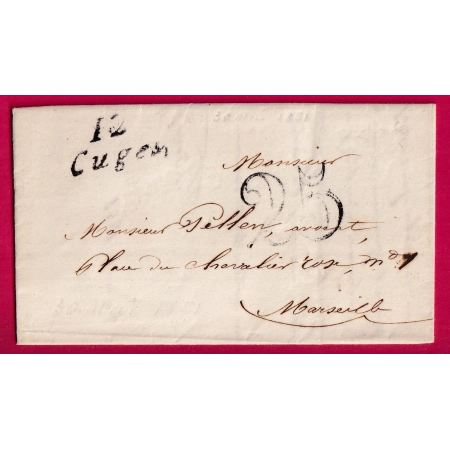 12
Cuges
25
Monsieur
Monsieur Pellen, avocat,
Place du chevalier roze, nº 7
Marseille